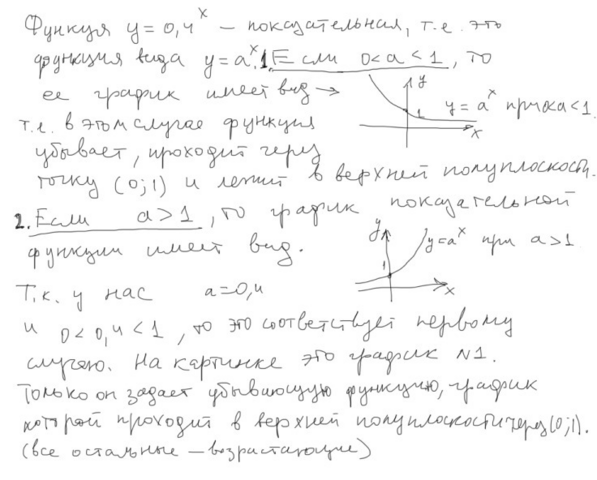 Функция y = 0,4^x – показательная, т.е. это
функция вида y = a^x. 1. Если 0 < a < 1, то
ее график имеет вид →
y
1
x
y = a^x при 0<a<1.
т.е. в этом случае функция
убывает, проходит через
точку (0;1) и лежит в верхней полуплоскости.
2. Если a > 1, то график показательной
функции имеет вид.
y
1
x
y = a^x при a > 1
Т.к. у нас a = 0,4
и 0 < 0,4 < 1, то это соответствует первому
случаю. На картинке это график №1.
Только он задает убывающую функцию, график
которой проходит в верхней полуплоскости через (0;1).
(все остальные – возрастающие)